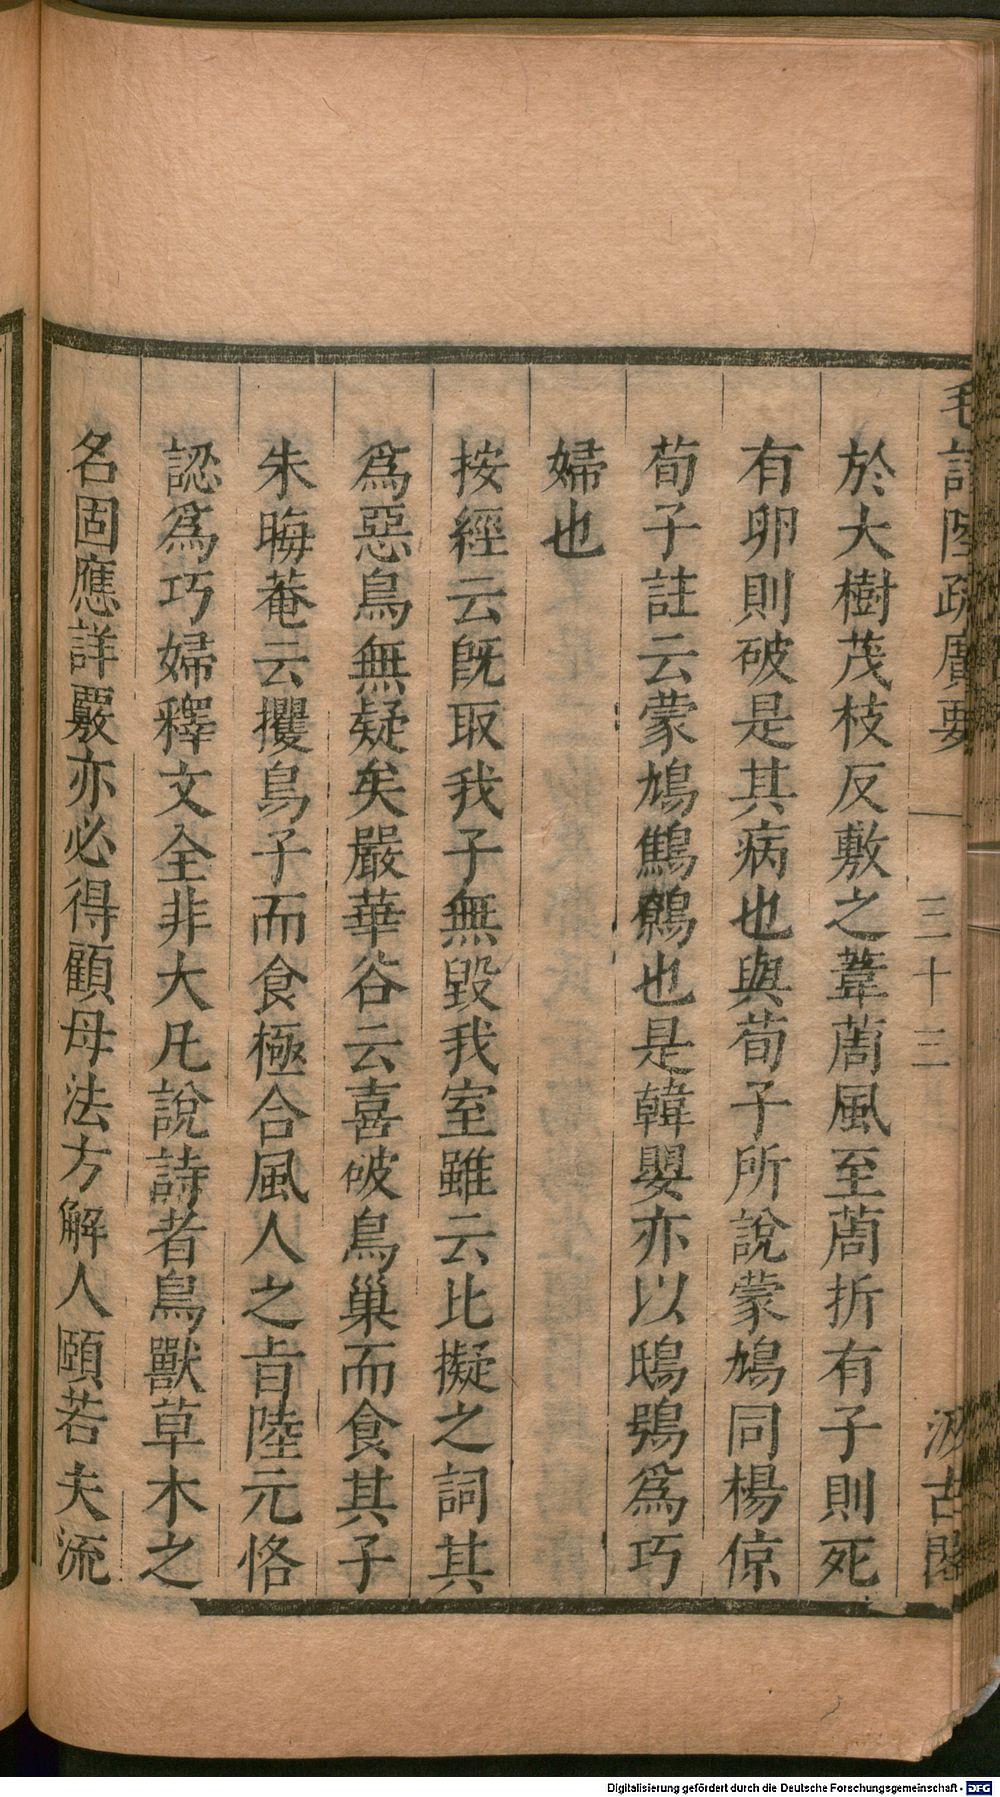 毛詩陸疏廣要 三十三 汲古閣
於大樹茂枝反敷之葦䓵風至䓵折有子則死
有卵則破是其病也與荀子所說蒙鳩同楊倞
荀子註云蒙鳩鷦鷯也是韓嬰亦以鴟鴞爲巧
婦也
按經云旣取我子無毀我室雖云比擬之詞其
爲惡鳥無疑矣嚴華谷云喜破鳥巢而食其子
朱晦菴云攫鳥子而食極合風人之旨陸元恪
認爲巧婦釋文全非大凡說詩者鳥獸草木之
名固應詳覈亦必得顧母法方解人頤若夫流
Digitalisierung gefördert durch die Deutsche Forschungsgemeinschaft - DFG